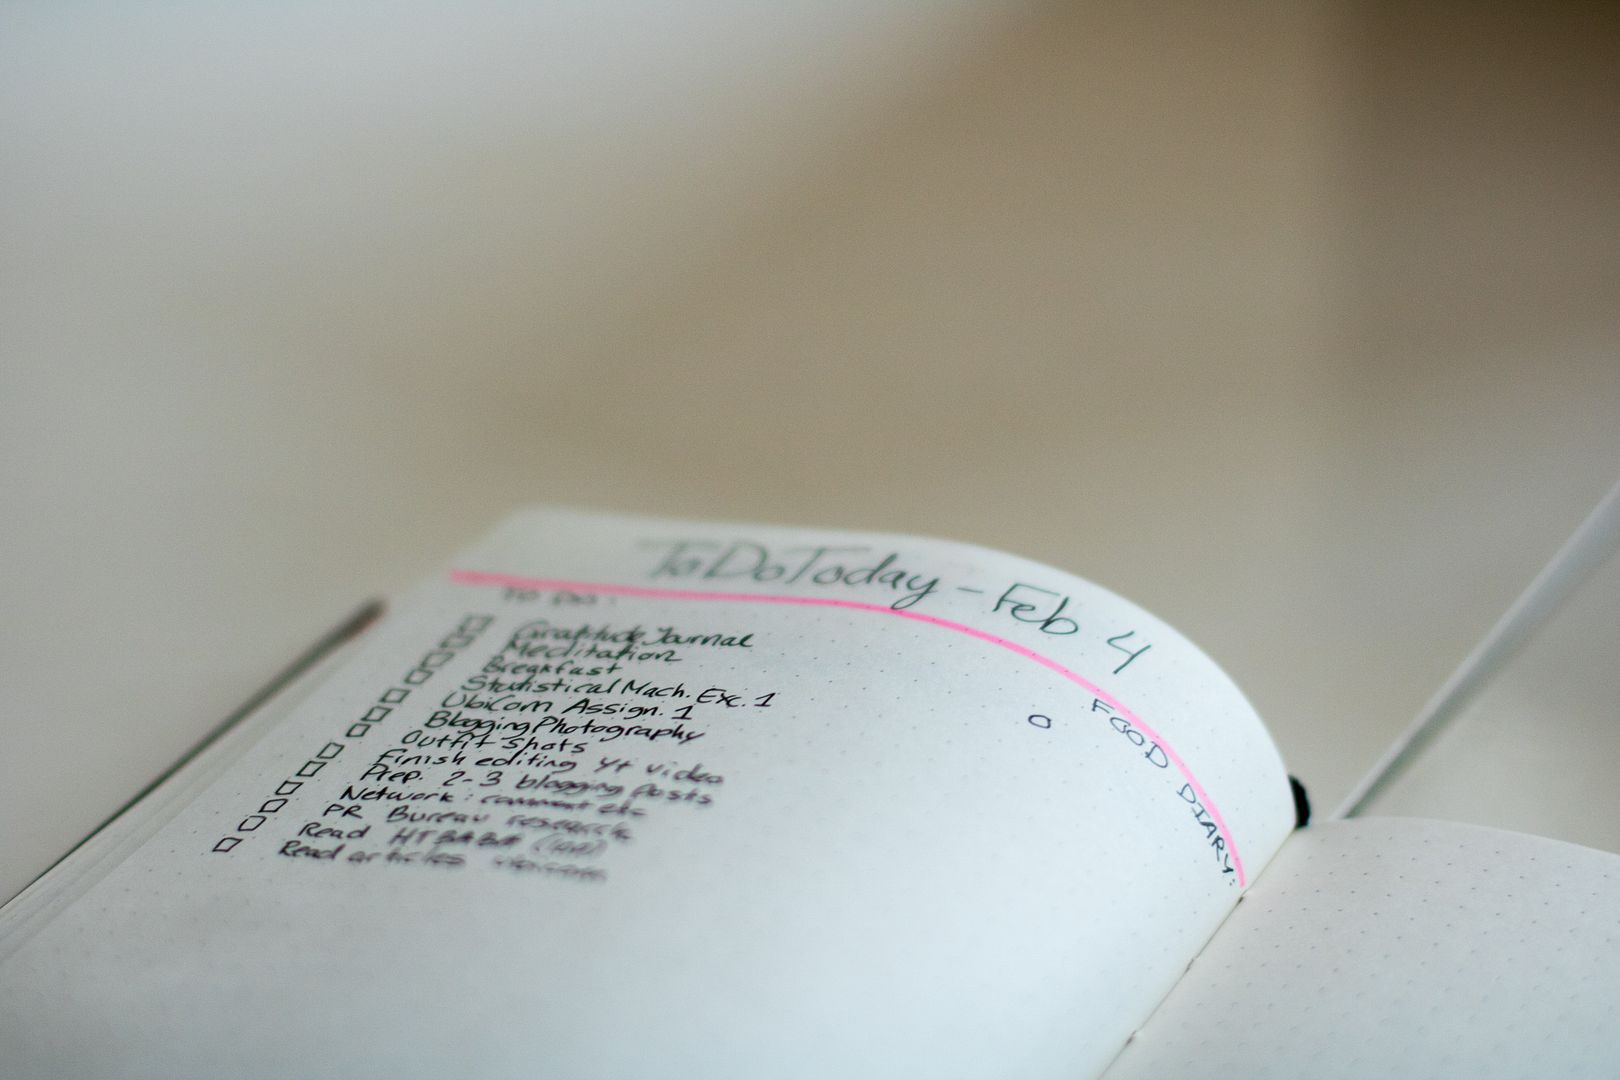 To Do Today - Feb 4
TO DO:
Gratitude Journal
Meditation
Breakfast
Statistical Mach. Exc. 1
UbiCom Assign. 1
Blogging Photography
Outfit shots
Finish editing Yt video
Prep. 2-3 blogging posts
Network: comment etc
PR Bureau research
Read HTBABM
Read articles
FOOD DIARY: